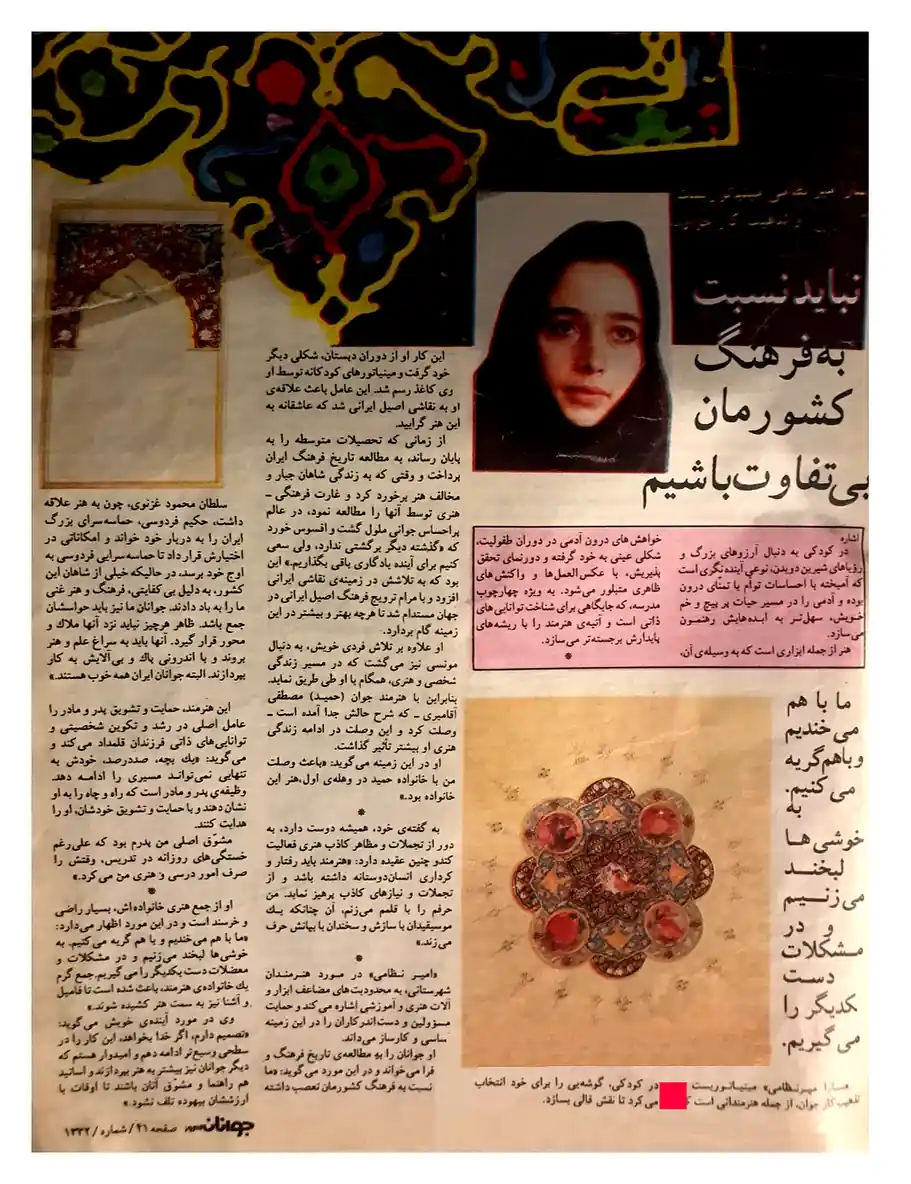 نباید نسبت
به فرهنگ
کشورمان
بی‌تفاوت باشیم
اشاره
در کودکی به دنبال آرزوهای بزرگ و
رؤیاهای شیرین دویدن، نوعی آینده‌نگری است
که آمیخته با احساسات توأم با تمنّای درون
بوده و آدمی را در مسیر حیات پر پیچ و خم
خویش، سهل‌تر به ایده‌هایش رهنمون
می‌سازد.
هنر از جمله ابزاری است که به وسیله‌ی آن،
خواهش‌های درون آدمی در دوران طفولیت،
شکلی عینی به خود گرفته و دورنمای تحقق
پذیریش، با عکس‌العمل‌ها و واکنش‌های
ظاهری متبلور می‌شود. به ویژه چهارچوب
مدرسه، که جایگاهی برای شناخت توانایی‌های
ذاتی است و آتیه‌ی هنرمند را با ریشه‌های
پایدارش برجسته‌تر می‌سازد.
*
ما با هم
می‌خندیم
و باهم گریه
می‌کنیم.
به
خوشی‌ها
لبخند
می‌زنیم
و در
مشکلات
دست
یکدیگر را
می‌گیریم.
«سارا میرنظامی» مینیاتوریست
تذهیب‌کار جوان، از جمله هنرمندانی است
در کودکی، گوشه‌یی را برای خود انتخاب
می‌کرد تا نقش قالی بسازد.
این کار او از دوران دبستان، شکلی دیگر
خود گرفت و مینیاتورهای کودکانه توسط او
وی کاغذ رسم شد. این عامل باعث علاقه‌ی
او به نقاشی اصیل ایرانی شد که عاشقانه به
این هنر گرایید.
از زمانی که تحصیلات متوسطه را به
پایان رساند، به مطالعه تاریخ فرهنگ ایران
پرداخت و وقتی که به زندگی شاهان جبار و
مخالف هنر برخورد کرد و غارت فرهنگی ـ
هنری توسط آنها را مطالعه نمود، در عالم
پراحساس جوانی ملول گشت و افسوس خورد
که «گذشته دیگر برگشتی ندارد، ولی سعی
کنیم برای آینده یادگاری باقی بگذاریم.» این
بود که به تلاشش در زمینه‌ی نقاشی ایرانی
افزود و با مرام ترویج فرهنگ اصیل ایرانی در
جهان مستدام شد تا هرچه بهتر و بیشتر در این
زمینه گام بردارد.
او علاوه بر تلاش فردی خویش، به دنبال
مونسی نیز می‌گشت که در مسیر زندگی
شخصی و هنری، همگام با او طی طریق نماید.
بنابراین با هنرمند جوان (حمید) مصطفی
آقامیری ـ که شرح حالش جدا آمده است ـ
وصلت کرد و این وصلت در ادامه زندگی
هنری او بیشتر تأثیر گذاشت.
او در این زمینه می‌گوید: «باعث وصلت
من با خانواده حمید در وهله‌ی اول، هنر این
خانواده بود.»
*
به گفته‌ی خود، همیشه دوست دارد، به
دور از تجملات و مظاهر کاذب هنری فعالیت
کند و چنین عقیده دارد: «هنرمند باید رفتار و
کرداری انسان‌دوستانه داشته باشد و از
تجملات و نیازهای کاذب پرهیز نماید. من
حرفم را با قلمم می‌زنم، آن چنانکه یک
موسیقیدان با سازش و سخندان با بیانش حرف
می‌زند.»
*
«امیر نظامی» در مورد هنرمندان
شهرستانی، به محدودیت‌های مضاعف ابزار و
آلات هنری و آموزشی اشاره می‌کند و حمایت
مسؤولین و دست‌اندرکاران را در این زمینه
ساسی و کارساز می‌داند.
او جوانان را به مطالعه‌ی تاریخ فرهنگ و
فرا می‌خواند و در این مورد می‌گوید: «ما
نسبت به فرهنگ کشورمان تعصب داشته
سلطان محمود غزنوی، چون به هنر علاقه
داشت، حکیم فردوسی، حماسه‌سرای بزرگ
ایران را به دربار خود خواند و امکاناتی در
اختیارش قرار داد تا حماسه‌سرایی فردوسی به
اوج خود برسد، در حالیکه خیلی از شاهان این
کشور، به دلیل بی‌کفایتی، فرهنگ و هنر غنی
ما را به باد دادند. جوانان ما نیز باید حواسشان
جمع باشد. ظاهر هرچیز نباید نزد آنها ملاک و
محور قرار گیرد. آنها باید به سراغ علم و هنر
بروند و با اندرونی پاک و بی‌آلایش به کار
بپردازند. البته جوانان ایران همه خوب هستند.»
این هنرمند، حمایت و تشویق پدر و مادر را
عامل اصلی در رشد و تکوین شخصیتی و
توانایی‌های ذاتی فرزندان قلمداد می‌کند و
می‌گوید: «یک بچه، صددرصد، خودش به
تنهایی نمی‌تواند مسیری را ادامه دهد.
وظیفه‌ی پدر و مادر است که راه و چاه را به او
نشان دهند و با حمایت و تشویق خودشان، او را
هدایت کنند.
مشوّق اصلی من پدرم بود که علی‌رغم
خستگی‌های روزانه در تدریس، وقتش را
صرف امور درسی و هنری من می‌کرد.»
*
او از جمع هنری خانواده‌اش، بسیار راضی
و خرسند است و در این مورد اظهار می‌دارد:
«ما با هم می‌خندیم و با هم گریه می‌کنیم. به
خوشی‌ها لبخند می‌زنیم و در مشکلات و
معضلات دست یکدیگر را می‌گیریم. جمع گرم
یک خانواده‌ی هنرمند، باعث شده است تا فامیل
و آشنا نیز به سمت هنر کشیده شوند.»
وی در مورد آینده‌ی خویش می‌گوید:
«تصمیم دارم، اگر خدا بخواهد، این کار را در
سطحی وسیع‌تر ادامه دهم و امیدوار هستم که
دیگر جوانان نیز بیشتر به هنر بپردازند و اساتید
هم راهنما و مشوّق آنان باشند تا اوقات با
ارزششان بیهوده تلف نشود.»
جوانان صفحه ۲۱/ شماره/ ۱۳۳۲